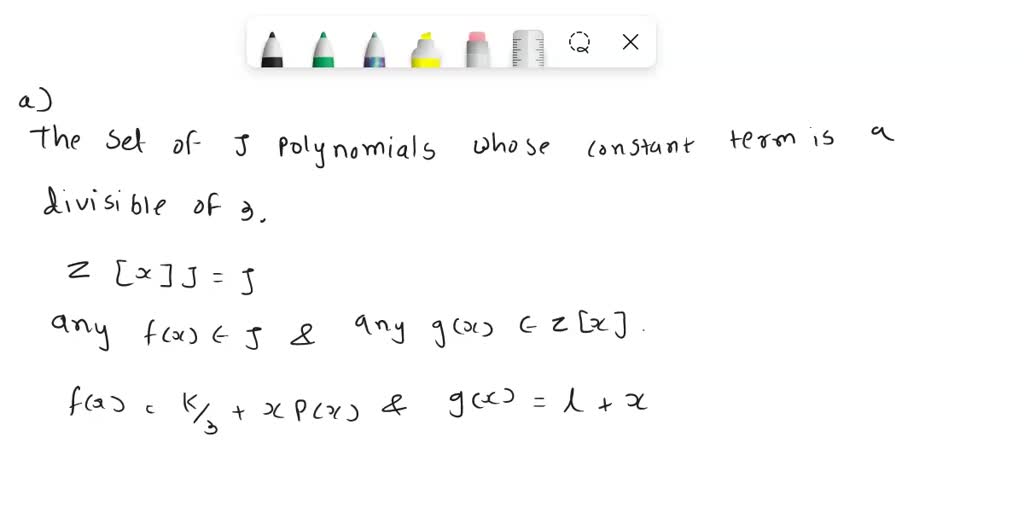 a)
The set of J polynomials whose constant term is a
divisible of 3.
Z [x] J = J
any f(x) ∈ J & any g(x) ∈ Z[x].
f(x) = K/3 + x P(x) & g(x) = l + x